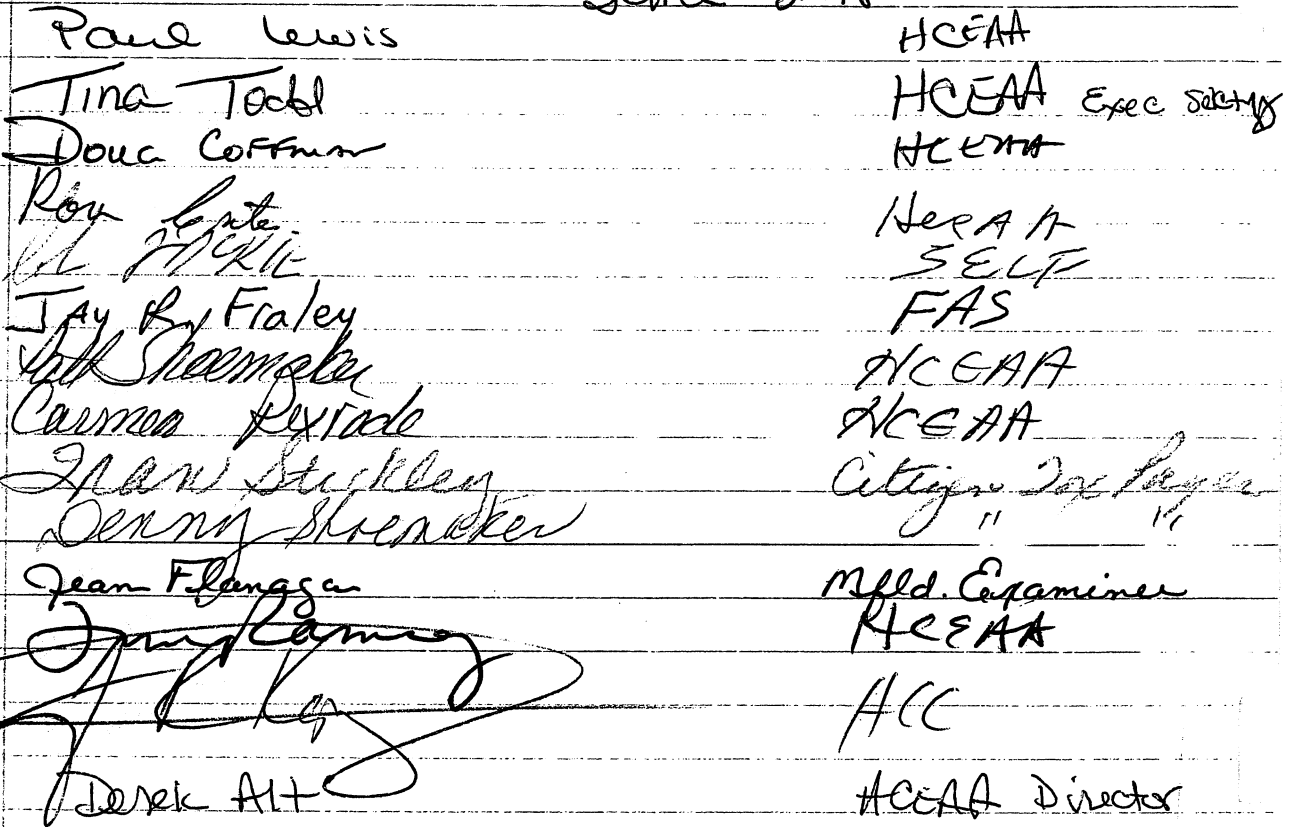 Paul Lewis HCEAA
Tina Todd HCEAA Exec
Doug Coffman HCEAA
Ron HCEAA
McKie SELF
Jay R. Fraley FAS
Shoemaker HCEAA
Carmen Rexrode HCEAA
Fran Stickley Citizen Tax Payer
Denny Shoemaker " "
Jean Flanagan Mfld. Examiner
Ramsey HCEAA
HCC
Derek Alt HCEAA Director